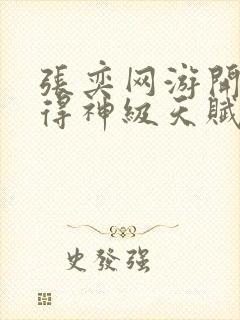 張奕网游開
得神級天賦
史發强